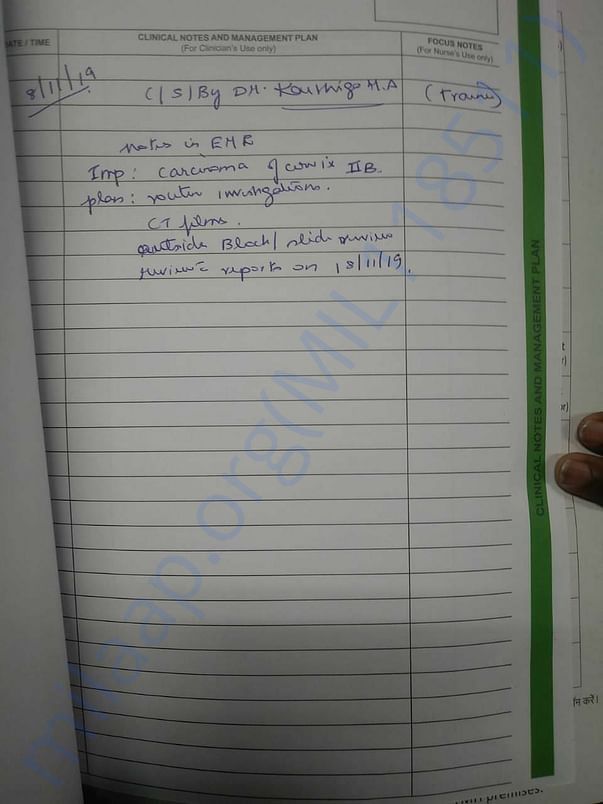 DATE / TIME
CLINICAL NOTES AND MANAGEMENT PLAN
(For Clinician's Use only)
FOCUS NOTES
(For Nurse's Use only)
8/11/19
C/S/By DR. H.A
(Trainee)
notes in EMR
Imp: Carcinoma of cervix IIB.
plan: routin investigations.
CT films.
outside Block/ slide review
review c̄ reports on 18/11/19.
CLINICAL NOTES AND MANAGEMENT PLAN
milaap.org(MIL18511)
premises.